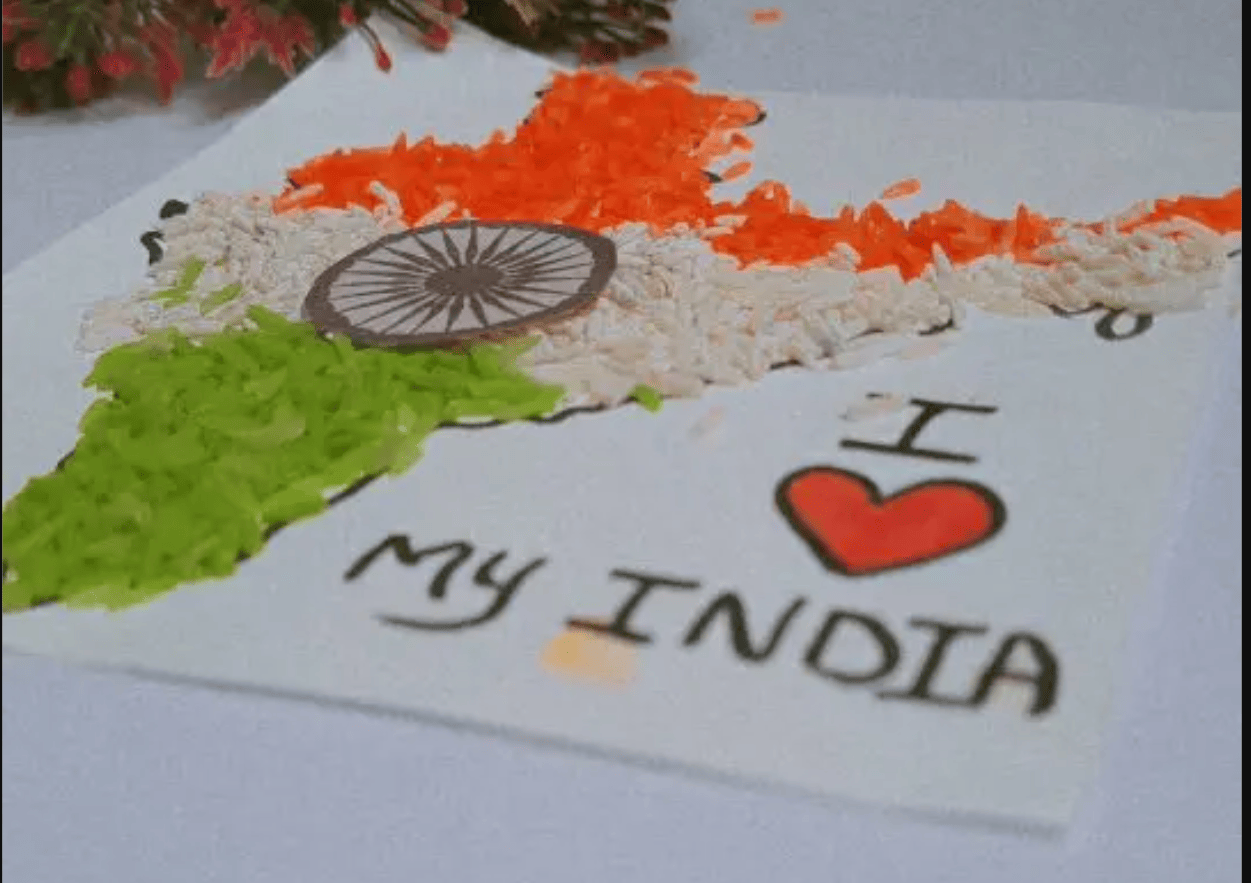 I
My INDIA